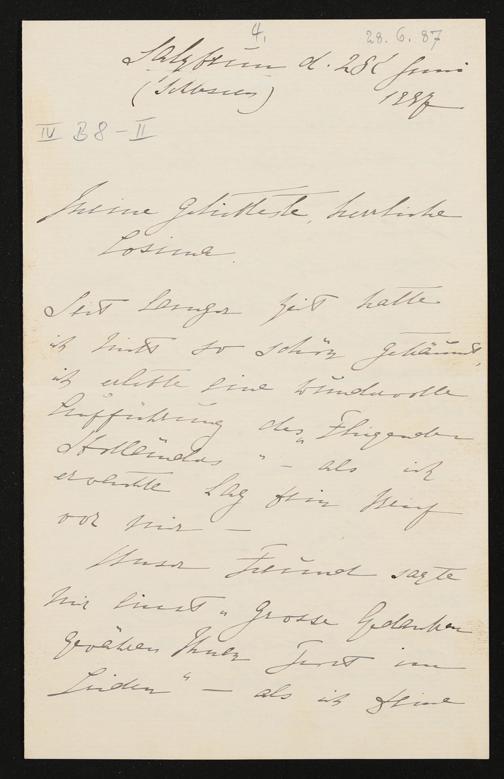 4.
28.6.87
Salzbrunn d. 28t Juni
(Schlesien) 1887
IV B 8 - II
Meine Geliebteste, herrliche
Cosima.
Seit langer Zeit hatte
ich nichts so schön geträumt,
ich erlebte eine wundervolle
Aufführung des "Fliegenden
Holländers" – als ich
erwachte lag Dein Brief
vor mir –
Unser Freund sagte
mir einst "Grosse Gedanken
gewähren Ihnen Trost im
Leiden" – als ich Deine